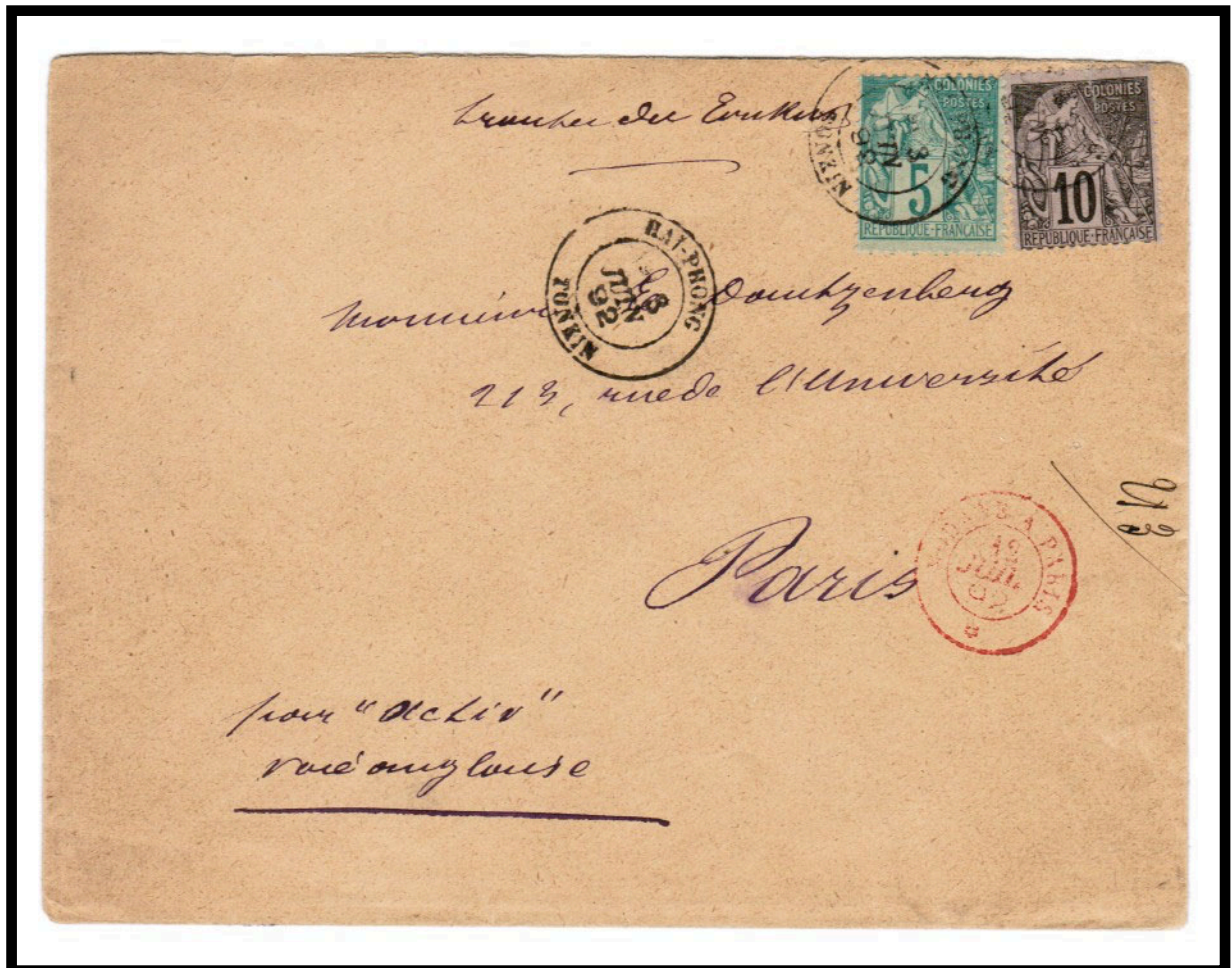 troupes du Tonkin
COLONIES
POSTES
5
REPUBLIQUE-FRANCAISE
COLONIES
POSTES
10
REPUBLIQUE-FRANCAISE
3
JUIN
92
TONKIN
HAI-PHONG
3
JUIN
92
TONKIN
Monsieur Dautzenberg
213, rue de l'Université
Paris
A PARIS
12
JUIL
92
par "Activ"
voie anglaise